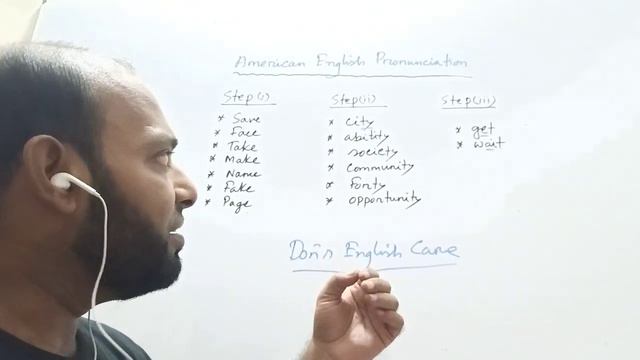 American English Pronunciation
Step(i)
* Save
* Face
* Take
* Make
* Name
* Fake
* Page
Step(ii)
* City
* ability
* society
* Community
* forty
* opportunity
Step(iii)
* get
* wait
English Care